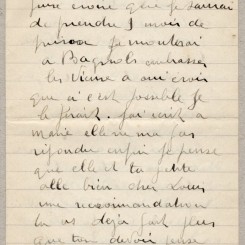 faire croire que je saurai
de prendre 1 mois de
je monterai
a Bagnols embrasser
les Vieux a moi crois
que si c'est possible je
le ferait. j'ai écrit a
marie elle ne ma pas
répondu enfin je pense
que elle et ta petite
alle bien cher Louis
une recommandation
tu as déjà fait plus
que ton devoir